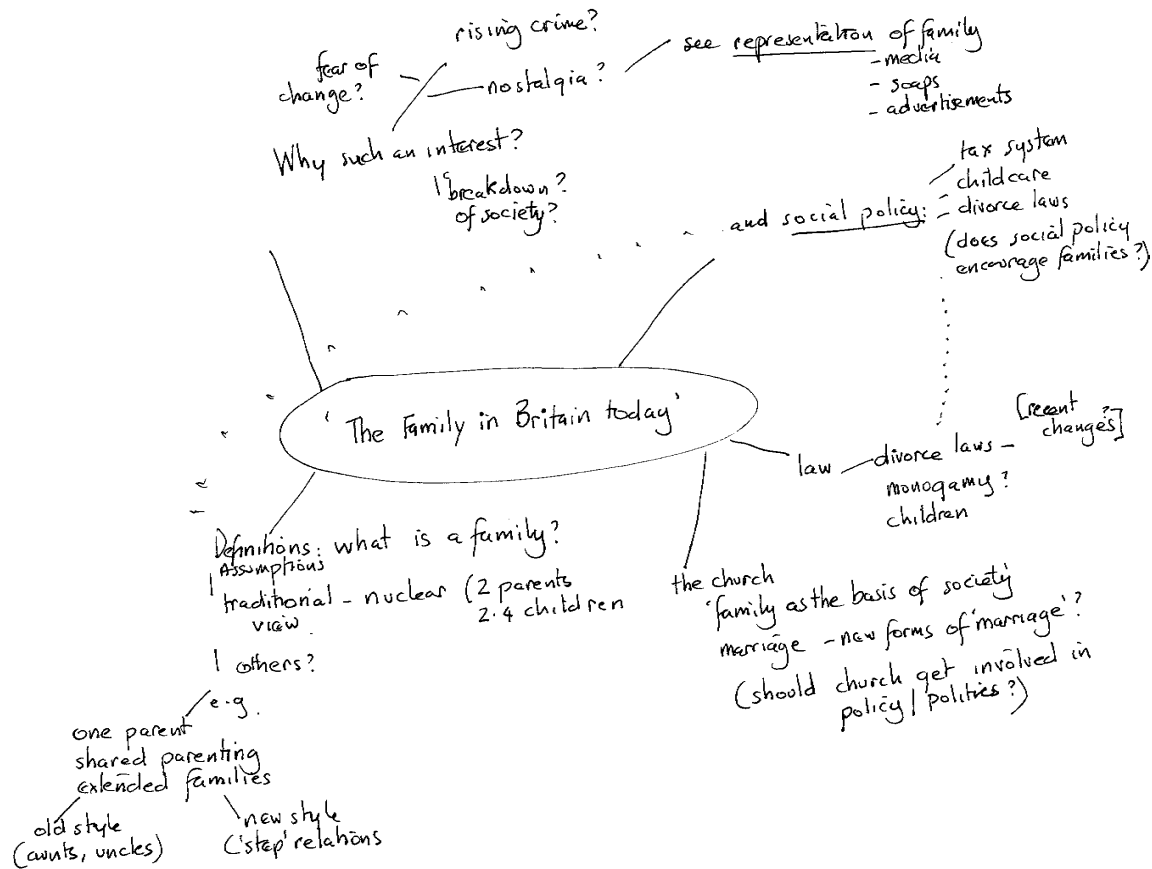 rising crime?
fear of
change?
nostalgia?
see representation of family
- media
- soaps
- advertisements
Why such an interest?
breakdown?
of society?
and social policy:
tax system
childcare
divorce laws
(does social policy
encourage families?)
'The Family in Britain today'
law
divorce laws -
monogamy?
children
[recent
changes?]
Definitions: what is a family?
Assumptions
traditional - nuclear (2 parents
view
2.4 children
others?
e.g.
one parent
shared parenting
extended families
old style
(aunts, uncles)
new style
('step' relations
the church
'family as the basis of society
marriage - new forms of 'marriage'?
(should church get involved in
policy/politics?)